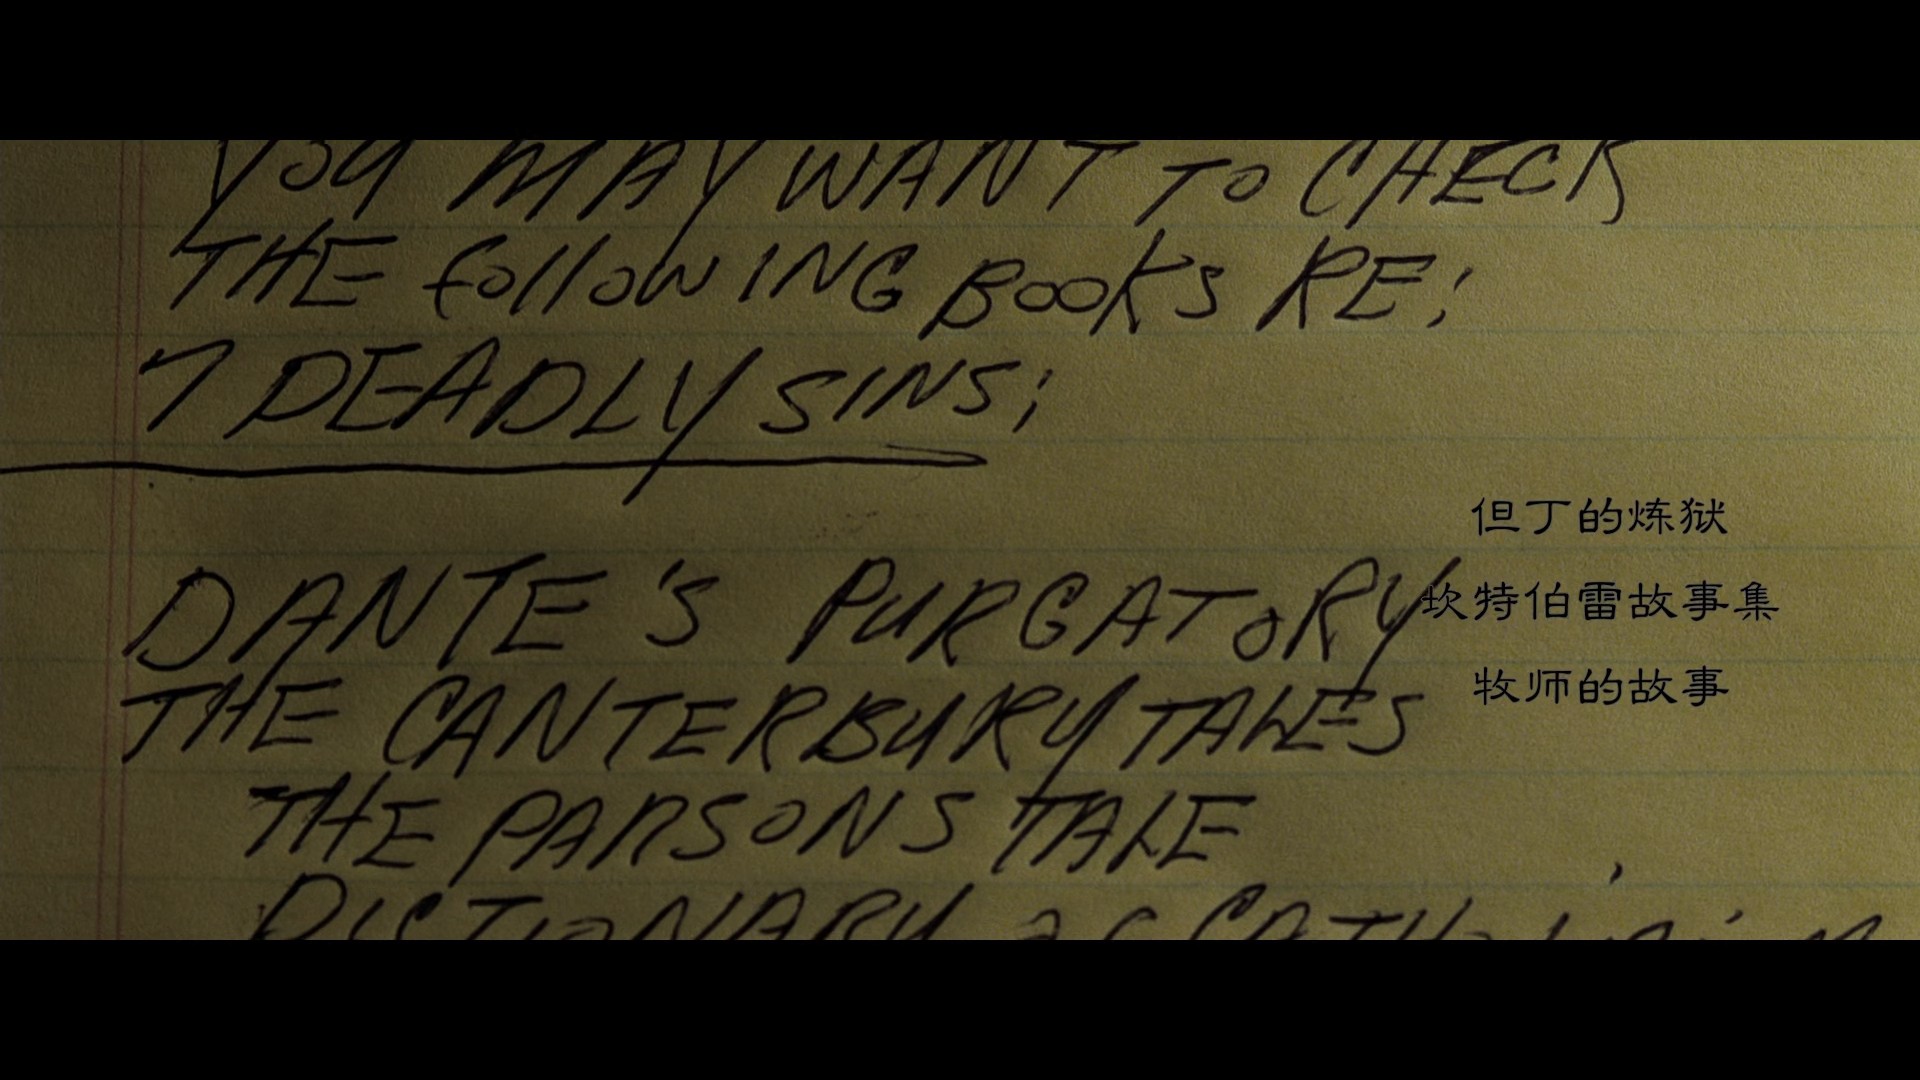 YOU MAY WANT TO CHECK
THE following BOOKS RE;
7 DEADLY SINS;
DANTE'S PURGATORY
THE CANTERBURY TALES
THE PARSONS TALE
DICTIONARY OF CATHOLICISM
但丁的炼狱
坎特伯雷故事集
牧师的故事